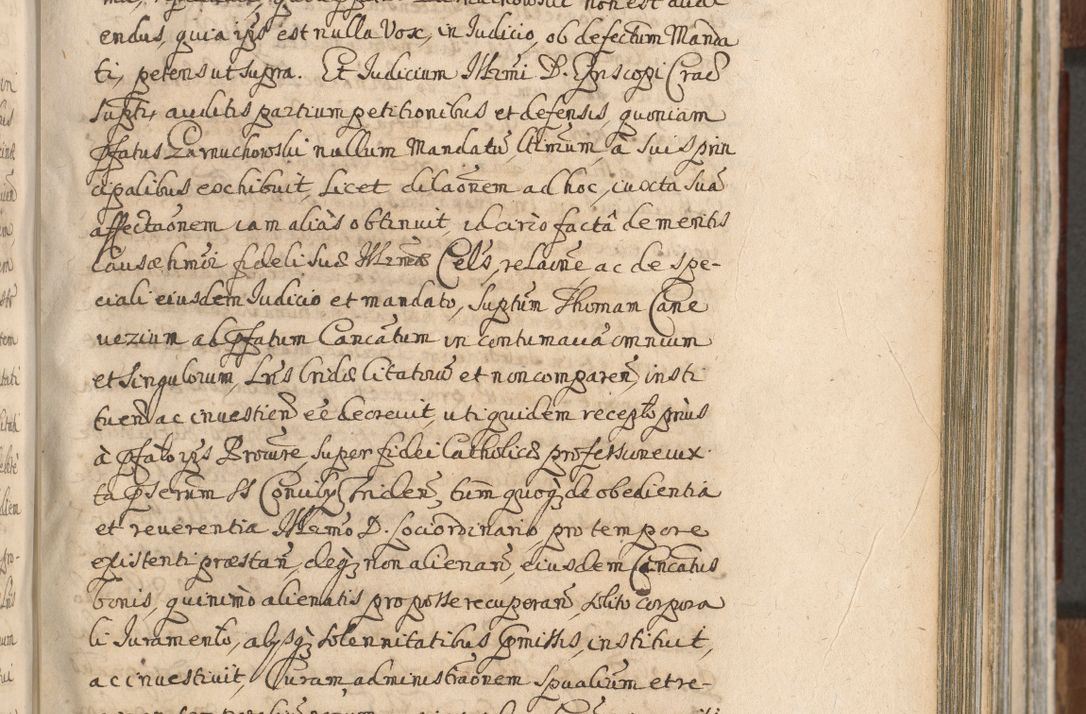 endus, quia ip̃s est nulla Vox, in Iudicio, ob defectum Manda
ti, petens ut supra. Et Iudicium Illr̃mi D. Ep̃iscopi Crac̃
Supt̃i, auditis partium petitionibus et defensis, quoniam
p̃fatus Zarnuchowski nullum Mandatũ, l̃timum, à suis prin
cipalibus exhibuit, Licet dilaõnem ad hoc, iuxta suã
affectaõnem iam aliàs obtinuit, idcirco factâ de meritis
Causæ hm̃oi fideli suæ Cels̃, relaõne ac de spe-
ciali eiusdem Iudicio et mandato, Supt̃um Thomam Cane
uezium ab p̃fatum Cancãtum in contumaciã omnium
et singulorum, Lrĩs Cridæ Citatorũ et non comparen̄, insti
tuen̄ ac inuestien̄ eẽ decreuit, uti quidem recepto priùs
à p̃fato ip̃s Procũre, super fidei Catholicæ professione iux
ta p̃serum SS Concily Triden̄, tùm quoq; de obedientia
et reuerentia Illr̃mo D. Loci ordinario pro tempore
existenti præstan̄, deq; non alienan̄, eiusdem Cancãtus
bonis, quinimò alienatis pro posse recuperan̄, solito corpora
li Iuramento, alysq; solennitatibus p̃missis, instituit,
ac inuestiuit, Curam, administraõnem spũalium et re-